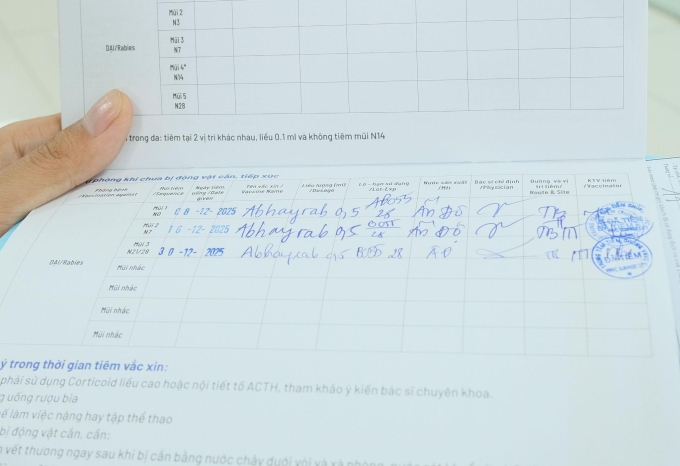 Mũi 2
N3
Mũi 3
N7
DẠI/Rabies
Mũi 4*
N14
Mũi 5
N28
trong da: tiêm tại 2 vị trí khác nhau, liều 0.1 ml và không tiêm mũi N14
phòng khi chưa bị động vật cắn, tiếp xúc
Phòng bệnh /Vaccination against Mũi tiêm /Sequence Ngày tiêm, uống /Date given Tên vắc xin / Vaccine Name Liều lượng (ml) /Dosage Lô - hạn sử dụng /Lot-Exp Nước sản xuất (M) Bác sĩ chỉ định /Physician Đường và vị trí tiêm/ Route & Site KTV tiêm /Vaccinator
Mũi 1 N0 08 -12- 2025 Abhayrab 0,5 28 Ấn Độ
Mũi 2 N7 16 -12- 2025 Abhayrab 0,5 28 Ấn Độ
Mũi 3 N21/28 30 -12- 2025 Abhayrab 0,5 28
DẠI/Rabies
Mũi nhắc
Mũi nhắc
Mũi nhắc
Mũi nhắc
ý trong thời gian tiêm vắc xin:
phải sử dụng Corticoid liều cao hoặc nội tiết tố ACTH, tham khảo ý kiến bác sĩ chuyên khoa.
uống rượu bia
làm việc nặng hay tập thể thao
bị động vật cắn, cần:
vết thương ngay sau khi bị cắn bằng nước chảy dưới vòi và xà phòng